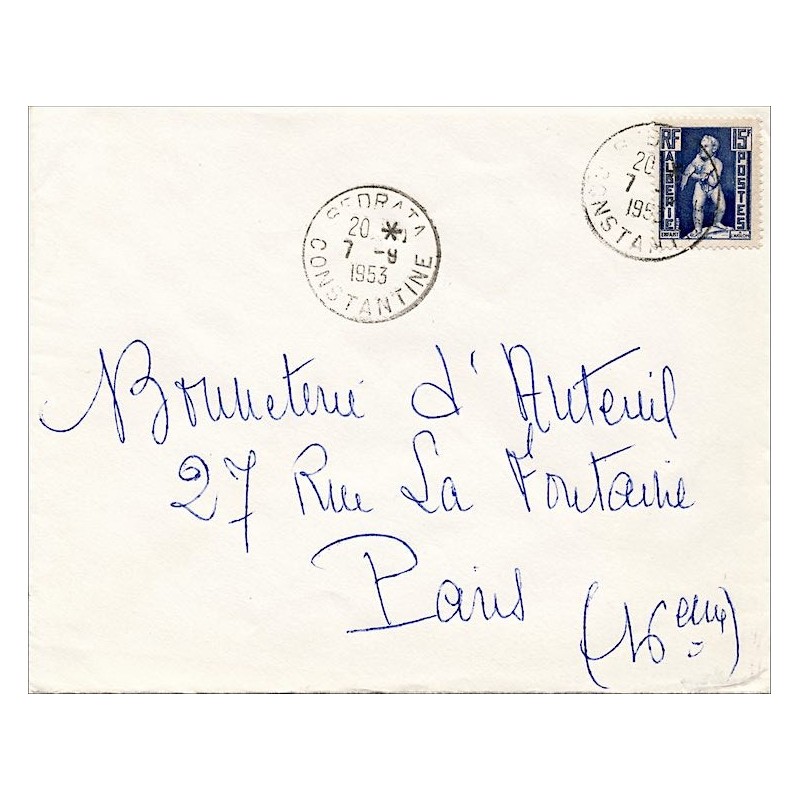 SEDRATA
20 * 1
7 -9
1953
CONSTANTINE
20
7
1953
CONSTANTINE
RF
15F
ALGERIE
POSTES
ENFANT
Bonneterie d'Auteuil
27 Rue La Fontaine
Paris (16eme)